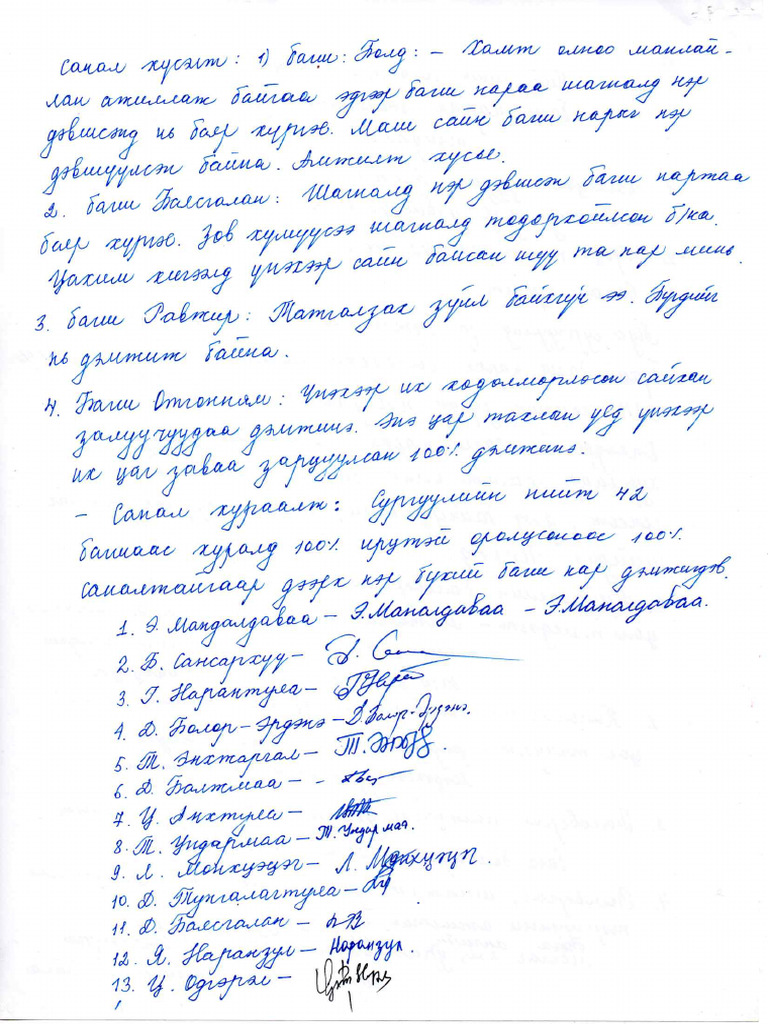 Санал хүсэлт: 1) багш: Болд: – Хамт олноо манлай-
лан ажиллаж байгаа эдгээр багш нараа шагналд нэр
дэвшсэнд нь баяр хүргэе. Маш сайн багш нарыг нэр
дэвшүүлсэн байна. Амжилт хүсье.
2. багш Баясгалан: Шагналд нэр дэвшсэн багш нартаа
баяр хүргэе. Зөв хүмүүсээ шагналд тодорхойлсон б/на.
Цахим хичээлд үнэхээр сайн байсан шүү та нар минь.
3. багш Равжир: Татгалзах зүйл байхгүй ээ. Бүгдийг
нь дэмжиж байна.
4. Багш Отгонням: Үнэхээр их хөдөлмөрлөсөн сайхан
залуучуудаа дэмжинэ. Энэ цар тахлын үед үнэхээр
их цаг заваа зарцуулсан 100% дэмжинэ.
– Санал хураалт: Сургуулийн нийт 42
багшаас хуралд 100% ирцтэй оролцсоноос 100%
саналтайгаар дээрх нэр бүхий багш нар дэмжигдэв.
1. Э. Мандалдаваа – Э.Маналдаваа – Э.Маналдаваа.
2. Б. Сансархүү –
3. Г. Нарантуяа –
4. Д. Болор-Эрдэнэ – Д.Болор-Эрдэнэ.
5. Т. Энхжаргал –
6. Д. Балжмаа –
7. Ц. Анхтуяа –
8. Т. Ундармаа – Т. Ундармаа.
9. Л. Мөнхцэцэг – Л. Мөнхцэцэг.
10. Д. Тунгалагтуяа –
11. Д. Баясгалан –
12. Я. Наранзул – Наранзул.
13. Ц. Одгэрэл –